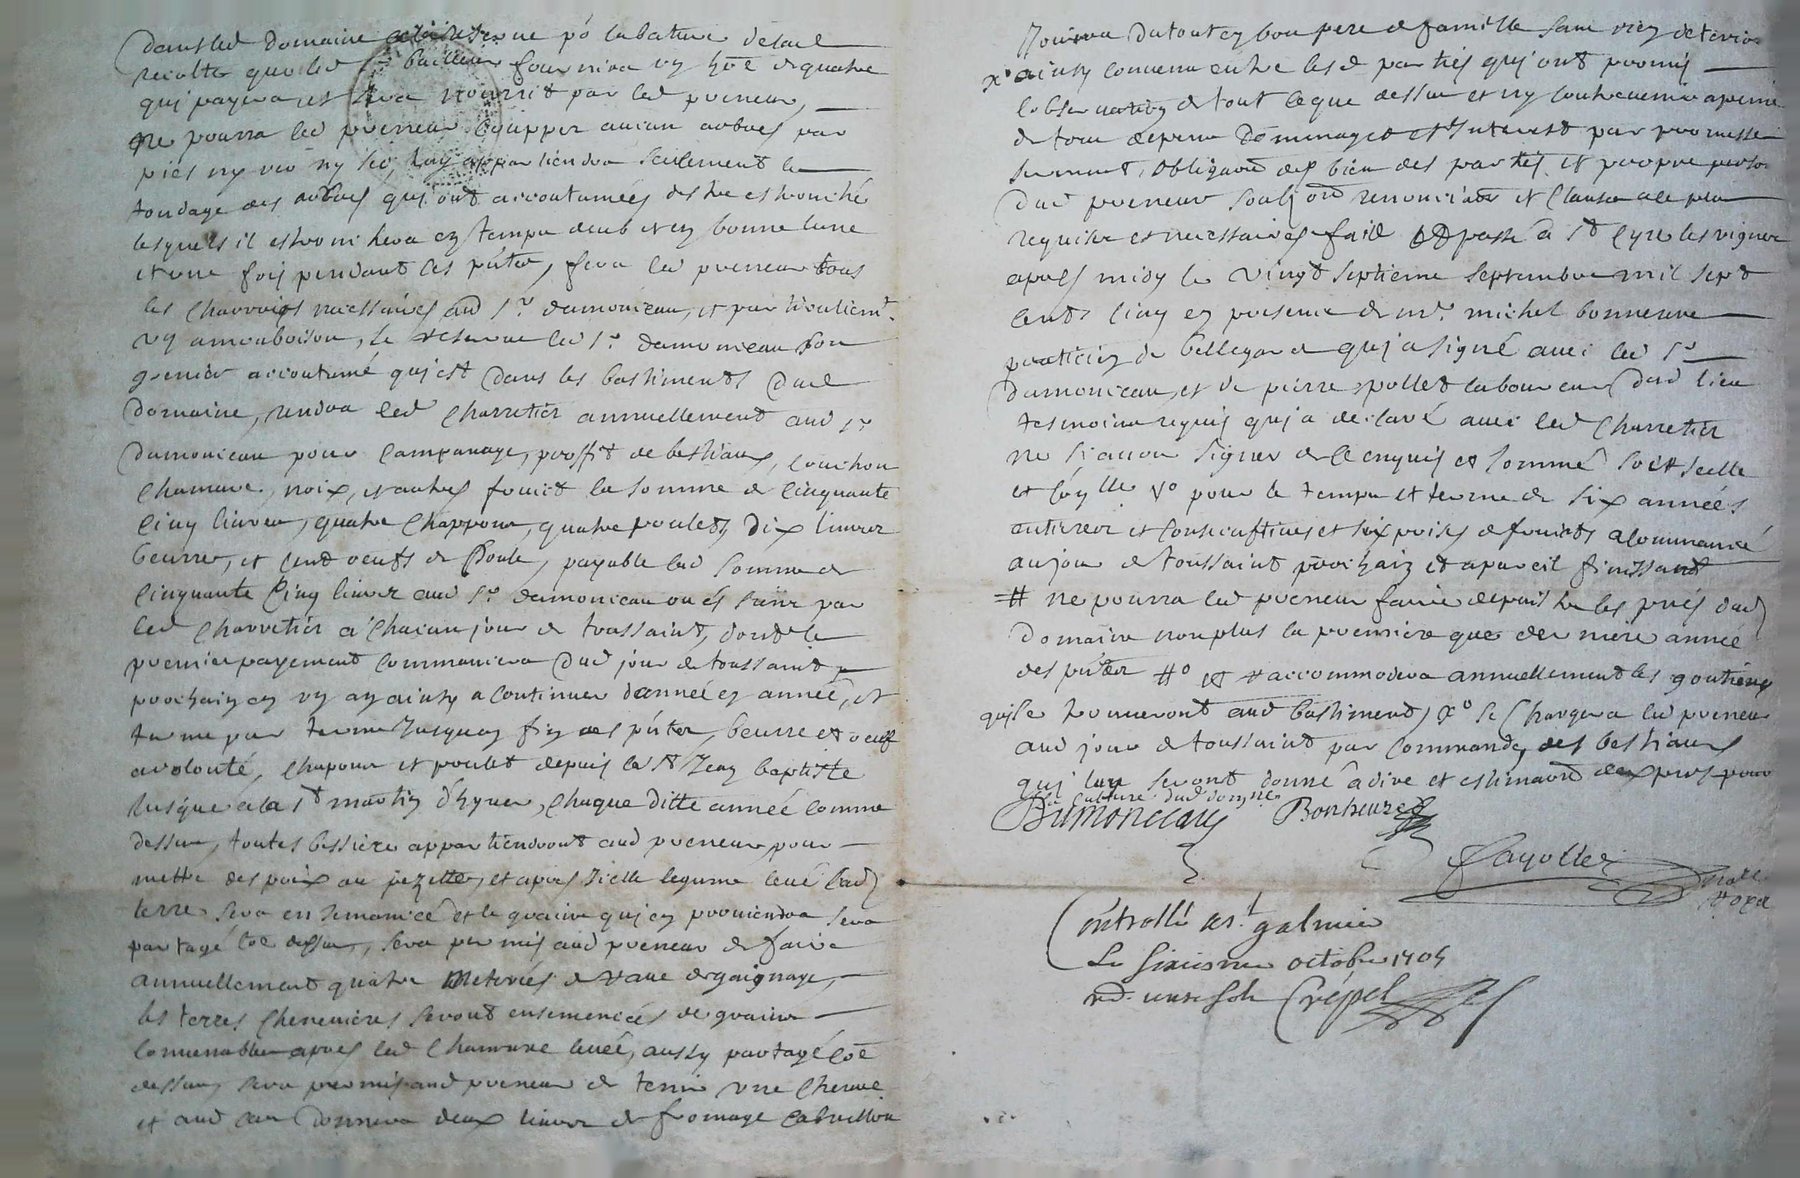 dans led domaine a la reserve po la bature desd
recoltes que led sr bailleur fournira un hōe de quatre
qui payera et sera nourrit par led preneur,
ne pourra led preneur coupper aucun arbres par
pies ny vif ny sec, luy appartiendra seulement le
tondage des arbres qui ont accoutumées destre estronché
lesquels il estronchera en temps deub et en bonne lune
et une fois pendant les pntes, fera led preneur tous
les charrois necessaires aud sr. dumonceau, et particuliemt.
un a monboison, se reserve led sr dumonceau son
grenier accoutumé qui est dans les bastiments dud
domaine, rendra led Charretier annuellement aud sr
dumonceau pour campanage, proffit de bestiaux, couchon
chanure, noix, et autres fruict la somme de cinquante
cinq livres, quatre chappons, quatre poulets, dix livres
beurre, et cent oeufs de Poule, payable lad somme de
cinquante cinq livres aud sr. dumonceau ou es siens par
led Charretier a chacun jour de toussaint, dont le
premier payement commancera dud jour de toussaint
prochain en un an ainsy a continuer dannée en année, et
terme par terme jusques fin des pntes, beurre et oeufs
a volonté, chapons et poulet depuis la st Jean baptiste
Jusque a la st martin d'hyver, chaque ditte année comme
dessus, toutes bessiere appartiendront aud preneur pour
mettre des poix ou pezettes, et apres icelle legume levé lad
terre sera ensemancée et le graine qui en proviendra sera
partagé cōe dessus, sera permis aud preneur de faire
annuellement quatre Meterées de rave de gaignage,
les terres chenevieres seront ensemencées de graine
convenable apres led chanvre levée, aussy partagé cōe
dessus, sera permis aud preneur de tenir une chevre
et aud cas donnera deux livres de fromage cabrillon
Nourira du tout en bon pere de famille sans rien deterior
x° ainsy convenu entre lesd parties qui ont promis
lobservation de tout ce que dessus et ny contrevenir a peine
de tous depens dommages et Interest par promesse
serment, obligaōn des bien des parties, et propre person
dud preneur soubzōn renonciaōn et clause a ce plus
requise et necessaires faict et passé a st Cyre les vignes
apres midy le vingt septieme septembre mil sept
cents cinq en presence de mr. michel bonneure
praticien de bellegarde qui a signé avec led sr
dumonceau, et de pierre pollet laboureur dud lieu
tesmoins requis qui a declaré avec led Charretier
ne sçavoir signer de ce enquis et sommé soit scelle
et vo pour le temps et terme de six années
entieres et consecuftives et six prises de fruicts a commancé
au jour de toussaint prochain et a pareil finissant
# ne pourra led preneur faire depaistre les prés dud
domaine non plus la premiere que derniere année
des pntes #o et raccommodera annuellement les goutieres
qui se trouveront aud bastiment, x° se chargera led preneur
aud jour de toussaint par commande des bestiaux
qui luy seront donné a dire et estimaōn deexpres pour
la culture dud domne.
Dumonceau Bonheure
Fayolle
notre
royal
Controllé a st. galmier
Le sixiesme octobre 1705
rd. unse sols Crépel